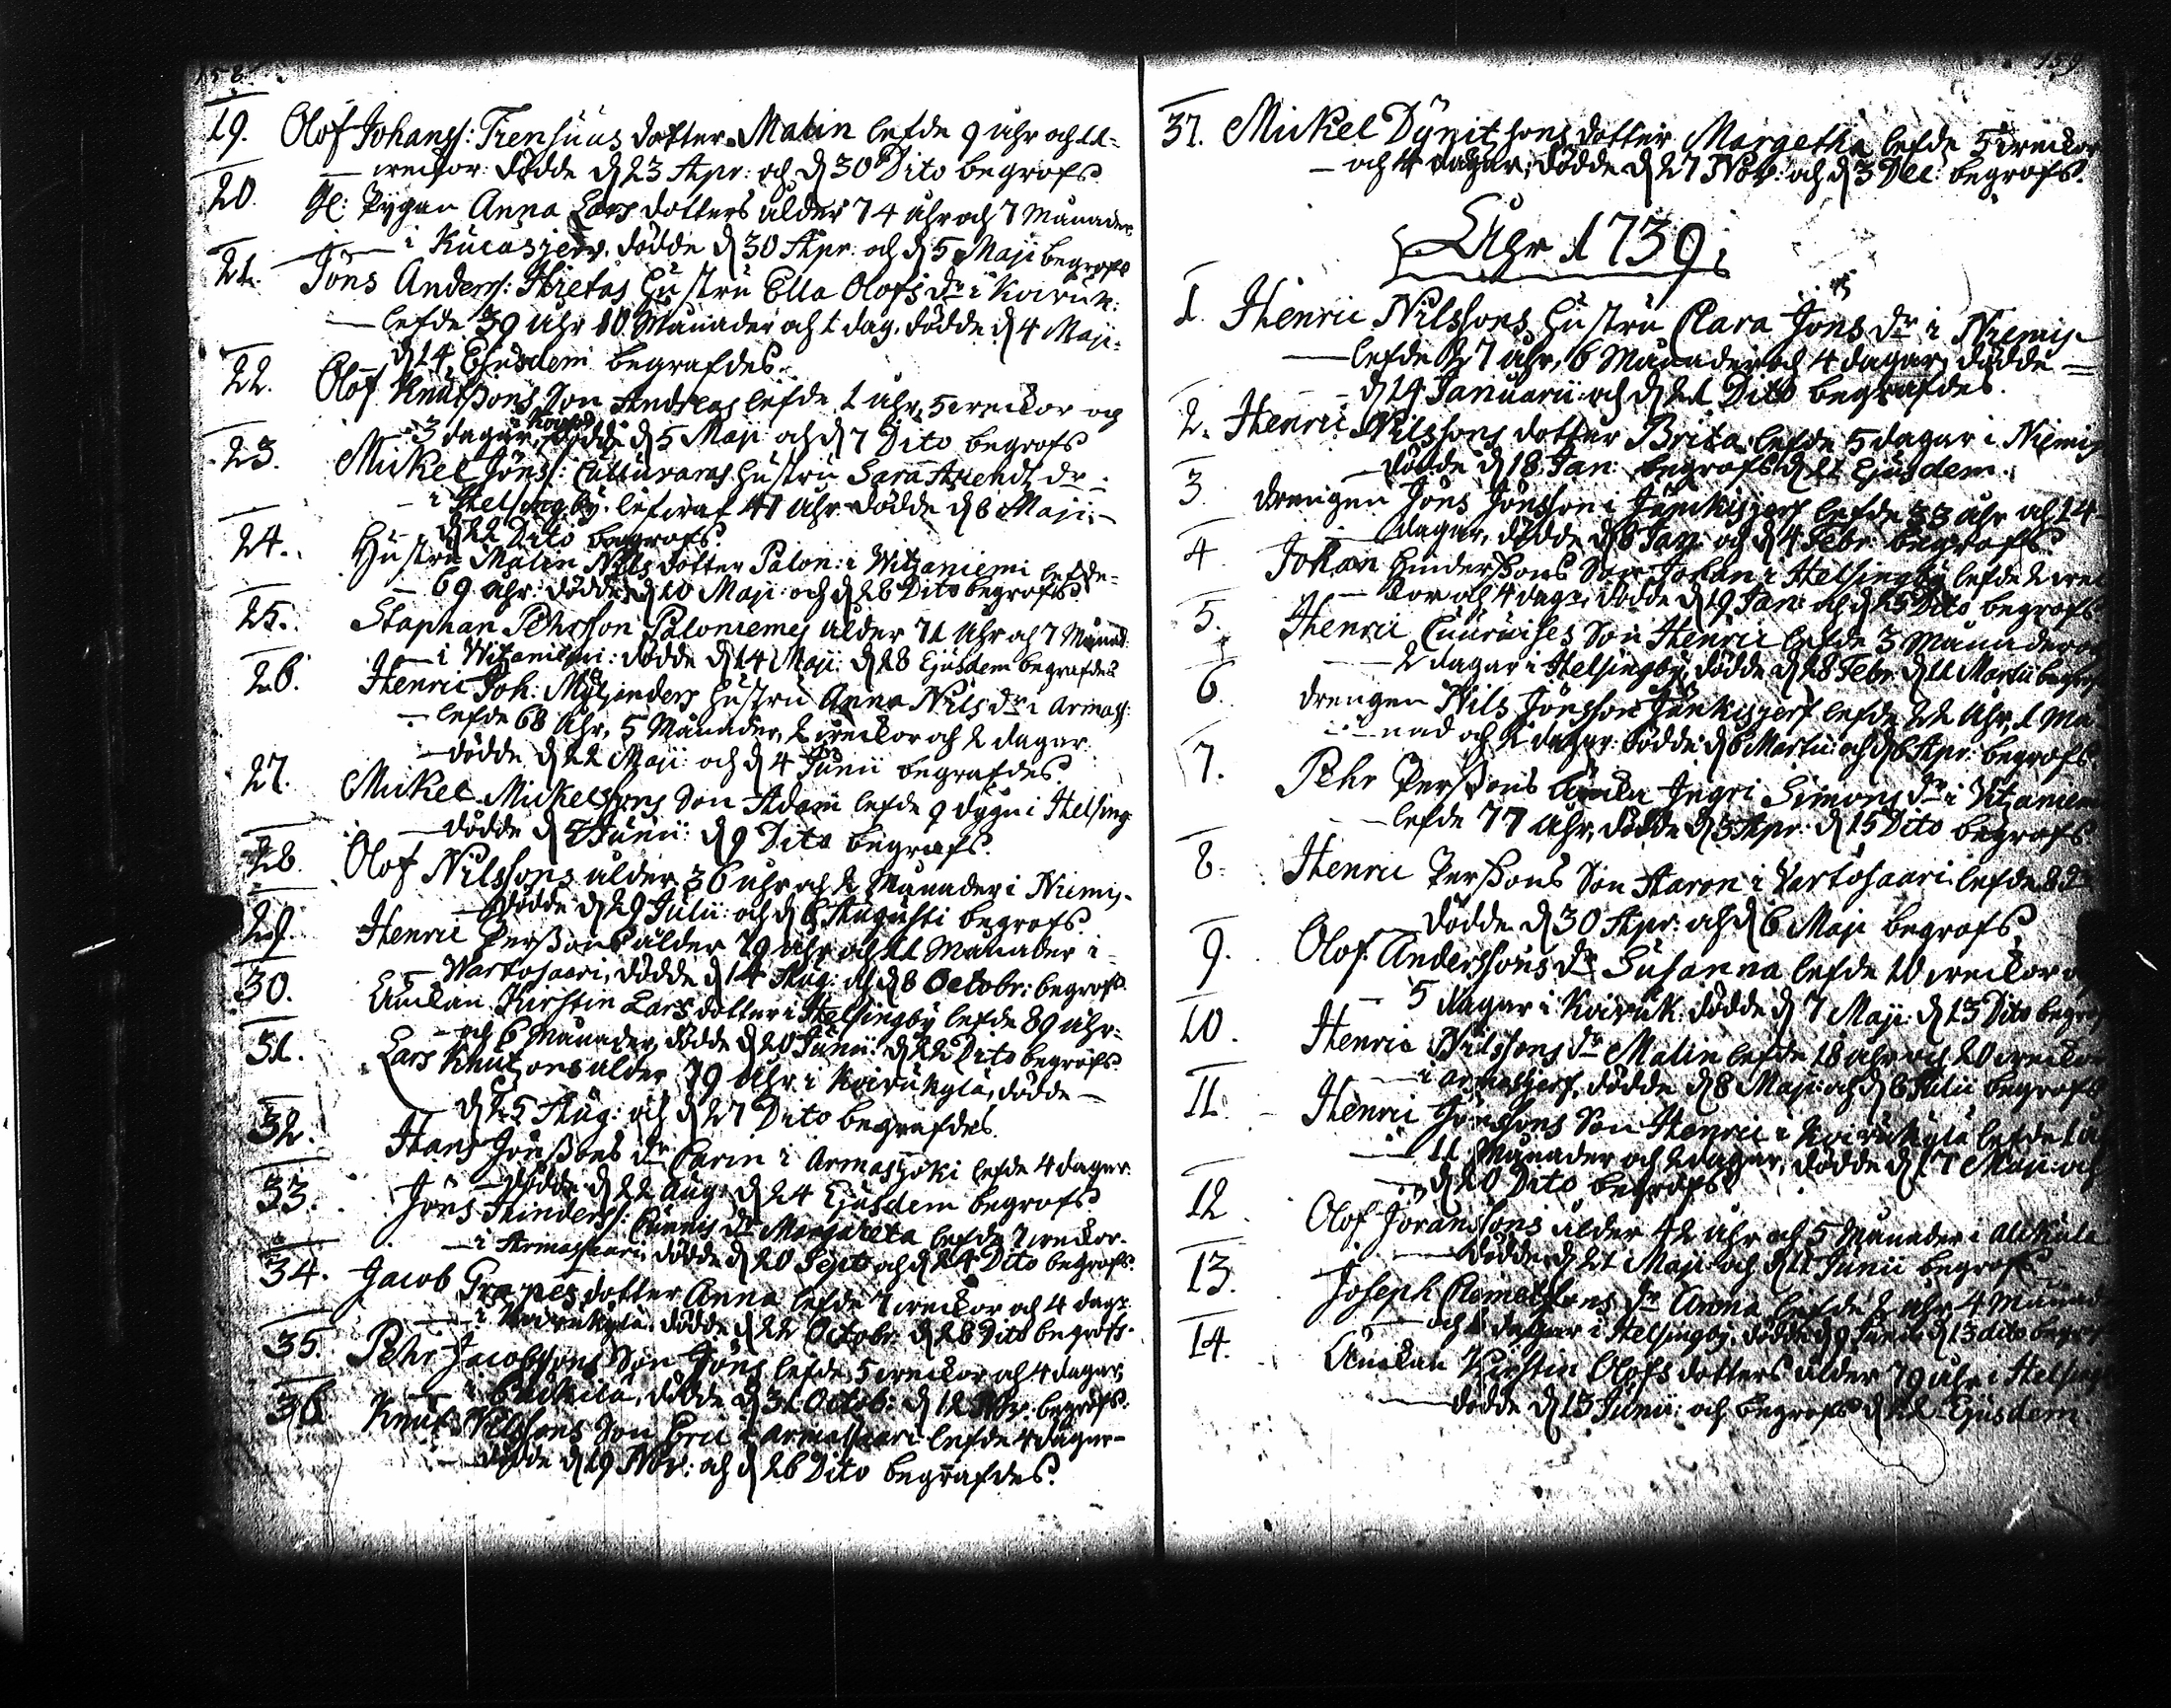 158.
19. Olof Johanss: Trensuus dotter Malin lefde 9 uhr och 11
weikor dödde d 23 Apr: och d 30 Dito begrofs
20. Gl: Pygan Anna Lars dotters ålder 74 uhr och 7 Månader
i Kucasjerv. dödde d 30 Apr: och d 5 Maji begrofs
21. Jöns Anderss: Hietas Hustru Ella Olofs dr i Koiruk:
lefde 39 Uhr 10 Månader och 1 dag, dödde d 4 Maji
d 14 Ejusdem begrafdes.
22. Olof Knutssons Son Andreas lefde 1 uhr, 5 weickor och
3 dagar, dödde d 5 Maji och d 7 Dito begrofs
23. Mickel Jönss: Hustru Sara Hendr. dr
i Helsingby. 41 Uhr dödde d 6 Maji
d 22 Dito begrofs.
24. Hustru Malin Nils dotter Palon: i Witzaniemi lefde
69 uhr: dödde d 10 Maji och d 26 Dito begrofs
25. Staphan Pehrsson Paloniemes ålder 71 Uhr och 7 Månad
i Witzaniemi: dödde d 14 Maji: d 28 Ejusdem begrafdes
26. Henric Joh: Hustru Anna Nils dr i Armass:
lefde 68 Uhr, 5 Månader, 2 weickor och 2 dagar
dödde d 22 Maji och d 4 Junii begrafdes
27. Mickel Mickelssons Son Adam lefde 9 dygn i Helsing
dödde d 5 Junii: d 9 Dito begrafs.
28. Olof Nilssons ålder 36 uhr och 2 Månader i Niemis
dödde d 29 Julii och d 6 Augusti begrofs.
29. Henric Perssons ålder 79 uhr och 11 Månader i
Wartosaari, dödde d 14 Aug: och d 8 Octobr: begrofs
30. Änckan Kirstin Lars dotter i Helsingby lefde 89 uhr
och 6 Månader, dödde d 20 Junii: d 22 Dito begrofs
31. Lars Knutzons ålder 79 Uhr i Koirukylä, dödde
d 25 Aug: och d 27 Dito begrafdes
32. Hans Jönssons dr Carin i Armasjoki lefde 4 dagar
dödde d 22 Aug: d 24 Ejusdem begrofs
33. Jöns Hinderss: dr Margareta lefde 7 weckor
i Armassaari dödde d 20 Sept och d 24 Dito begrofs
34. Jacob Grapes dotter Anna lefde 7 weickor och 4 dagr
i Koirukylä. dödde d 22 Octobr: d 28 Dito begrofs.
35. Pehr Jacobssons Son Jöns lefde 5 weickor och 4 dagar
dödde d 31 Octob: d 12 Nov: begrofs.
36. Knut Nilssons Son Eric i Armassaari lefde 4 dagar
dödde d 19 Nov: och d 26 Dito begrafdes.
159
37. Mickel Dynitzons dotter Margetha lefde 5 weickor
och 4 dagar, dödde d 27 Nov: och d 3 Dec: begrofs.
Uhr 1739:
1. Henric Nilssons Hustru Clara Jöns dr i Niemis
lefde 7 uhr, 6 Månader och 4 dagar, dödde
d 14 Januarii och d 21 Dito begrafdes.
2. Henric Nilssons dotter Brita lefde 5 dagar i Niemis
dödde d 18 Jan: begrofs d 21 Ejusdem.
3. Drengen Jöns Jönsson i Junckisjerf lefde 33 uhr och 14
dagar, dödde d 8 Jan: och d 4 Febr: begrofs
4. Johan Hinderssons Son Johan i Helsingby lefde 2 wei
kor och 4 dagr, dödde d 19 Jan: och d 25 Dito begrofs
5. Henric Cuurwises Son Henric lefde 3 Månader och
2 dagar i Helsingby, dödde d 28 Febr: d 11 Martii begrof
6. Drengen Nils Jönsson Junkisjerf lefde 22 Uhr, 1 Må
nad och 2 dagar dödde d 6 Martii och d 6 Apr: begrofs
7. Pehr Perssons Äncka Ingri Simons dr i Vitzaniem
lefde 77 Uhr, dödde d 3 Apr: d 15 Dito begrofs
8. Henric Perssons Son Aaron i Vartosaari lefde 8 d
dödde d 30 Apr: och d 6 Maji begrofs
9. Olof Anderssons dr Susanna lefde 10 weickor o
5 dagar i Koiruk. dödde d 7 Maji: d 13 Dito begrof
10. Henric Nilssons dr Malin lefde 18 uhr och 20 weickor
i Armasjerf, dödde d 8 Maji och d 8 Julii begrofs
11. Henric Jönssons Son Henric i Koirukylä lefde 1 uh
11 Månader och 2 dagar, dödde d 17 Maji och
d 20 Dito begrofs.
12. Olof Joranssons ålder 42 uhr och 5 Månader i Alckula
dödde d 21 Maji och d 11 Junii begrofs
13. Joseph Clemetssons dr Anna lefde 2 Uhr 4 Månad
och dagar i Helsingby, dödde d 9 Junii d 13 dito begrof
14. Änckan Kirstin Olofs dotters ålder 79 uhr i Helsing
dödde d 13 Junii: och begrofs d 22 Ejusdem